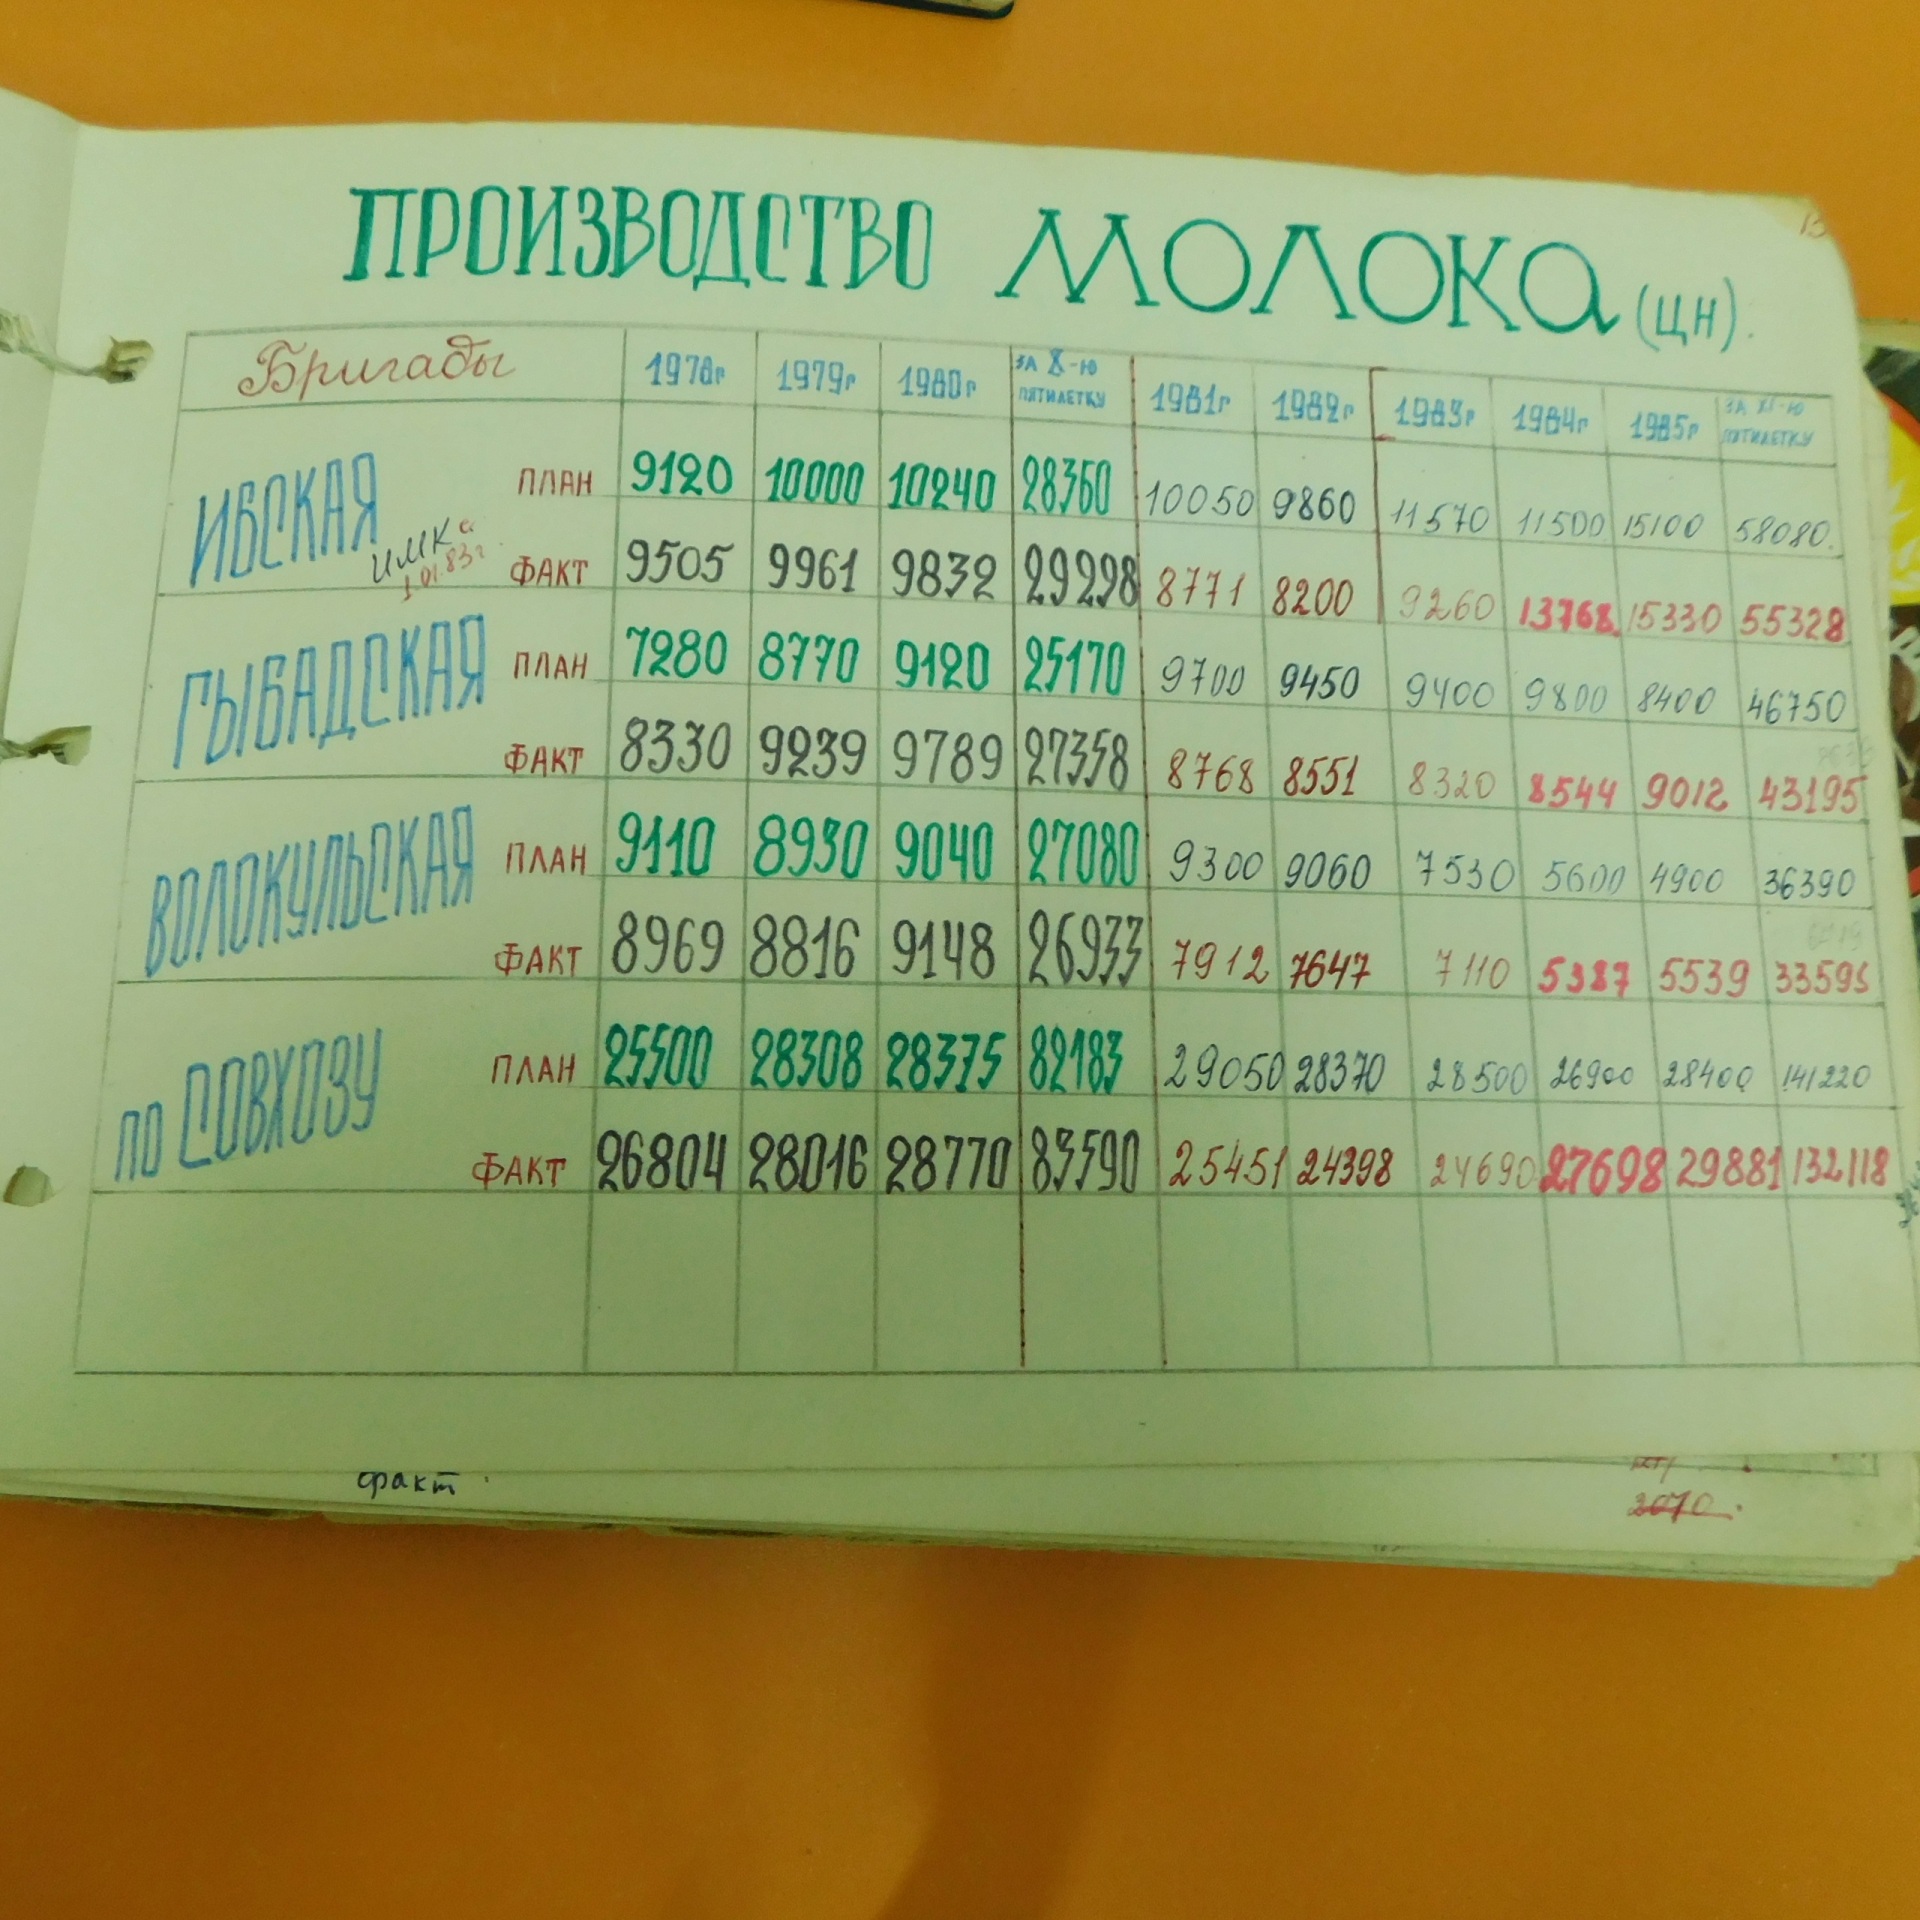 13
ПРОИЗВОДСТВО МОЛОКА (ЦН).
Бригады 1978г 1979г 1980г ЗА X-Ю ПЯТИЛЕТКУ 1981г 1982г 1983г 1984г 1985г ЗА XI-Ю ПЯТИЛЕТКУ
ИБСКАЯ ПЛАН 9120 10000 10240 28360 10050 9860 11570 11500 15100 58080.
ИМК с 1.01.83г.
ФАКТ 9505 9961 9832 29298 8771 8200 9260 13768. 15330 55328
ГЫБАДСКАЯ ПЛАН 7280 8770 9120 25170 9700 9450 9400 9800 8400 46750
ФАКТ 8330 9239 9789 27358 8768 8551 8320 8544 9012 43195
ВОЛОКУЛЬСКАЯ ПЛАН 9110 8930 9040 27080 9300 9060 7530 5600 4900 36390
ФАКТ 8969 8816 9148 26933 7912 7647 7110 5387 5539 33595
ПО СОВХОЗУ ПЛАН 25500 28308 28375 82183 29050 28370 28500 26900 28400 141220
ФАКТ 26804 28016 28770 83590 25451 24398 24690 27698 29881 132118
факт
2070